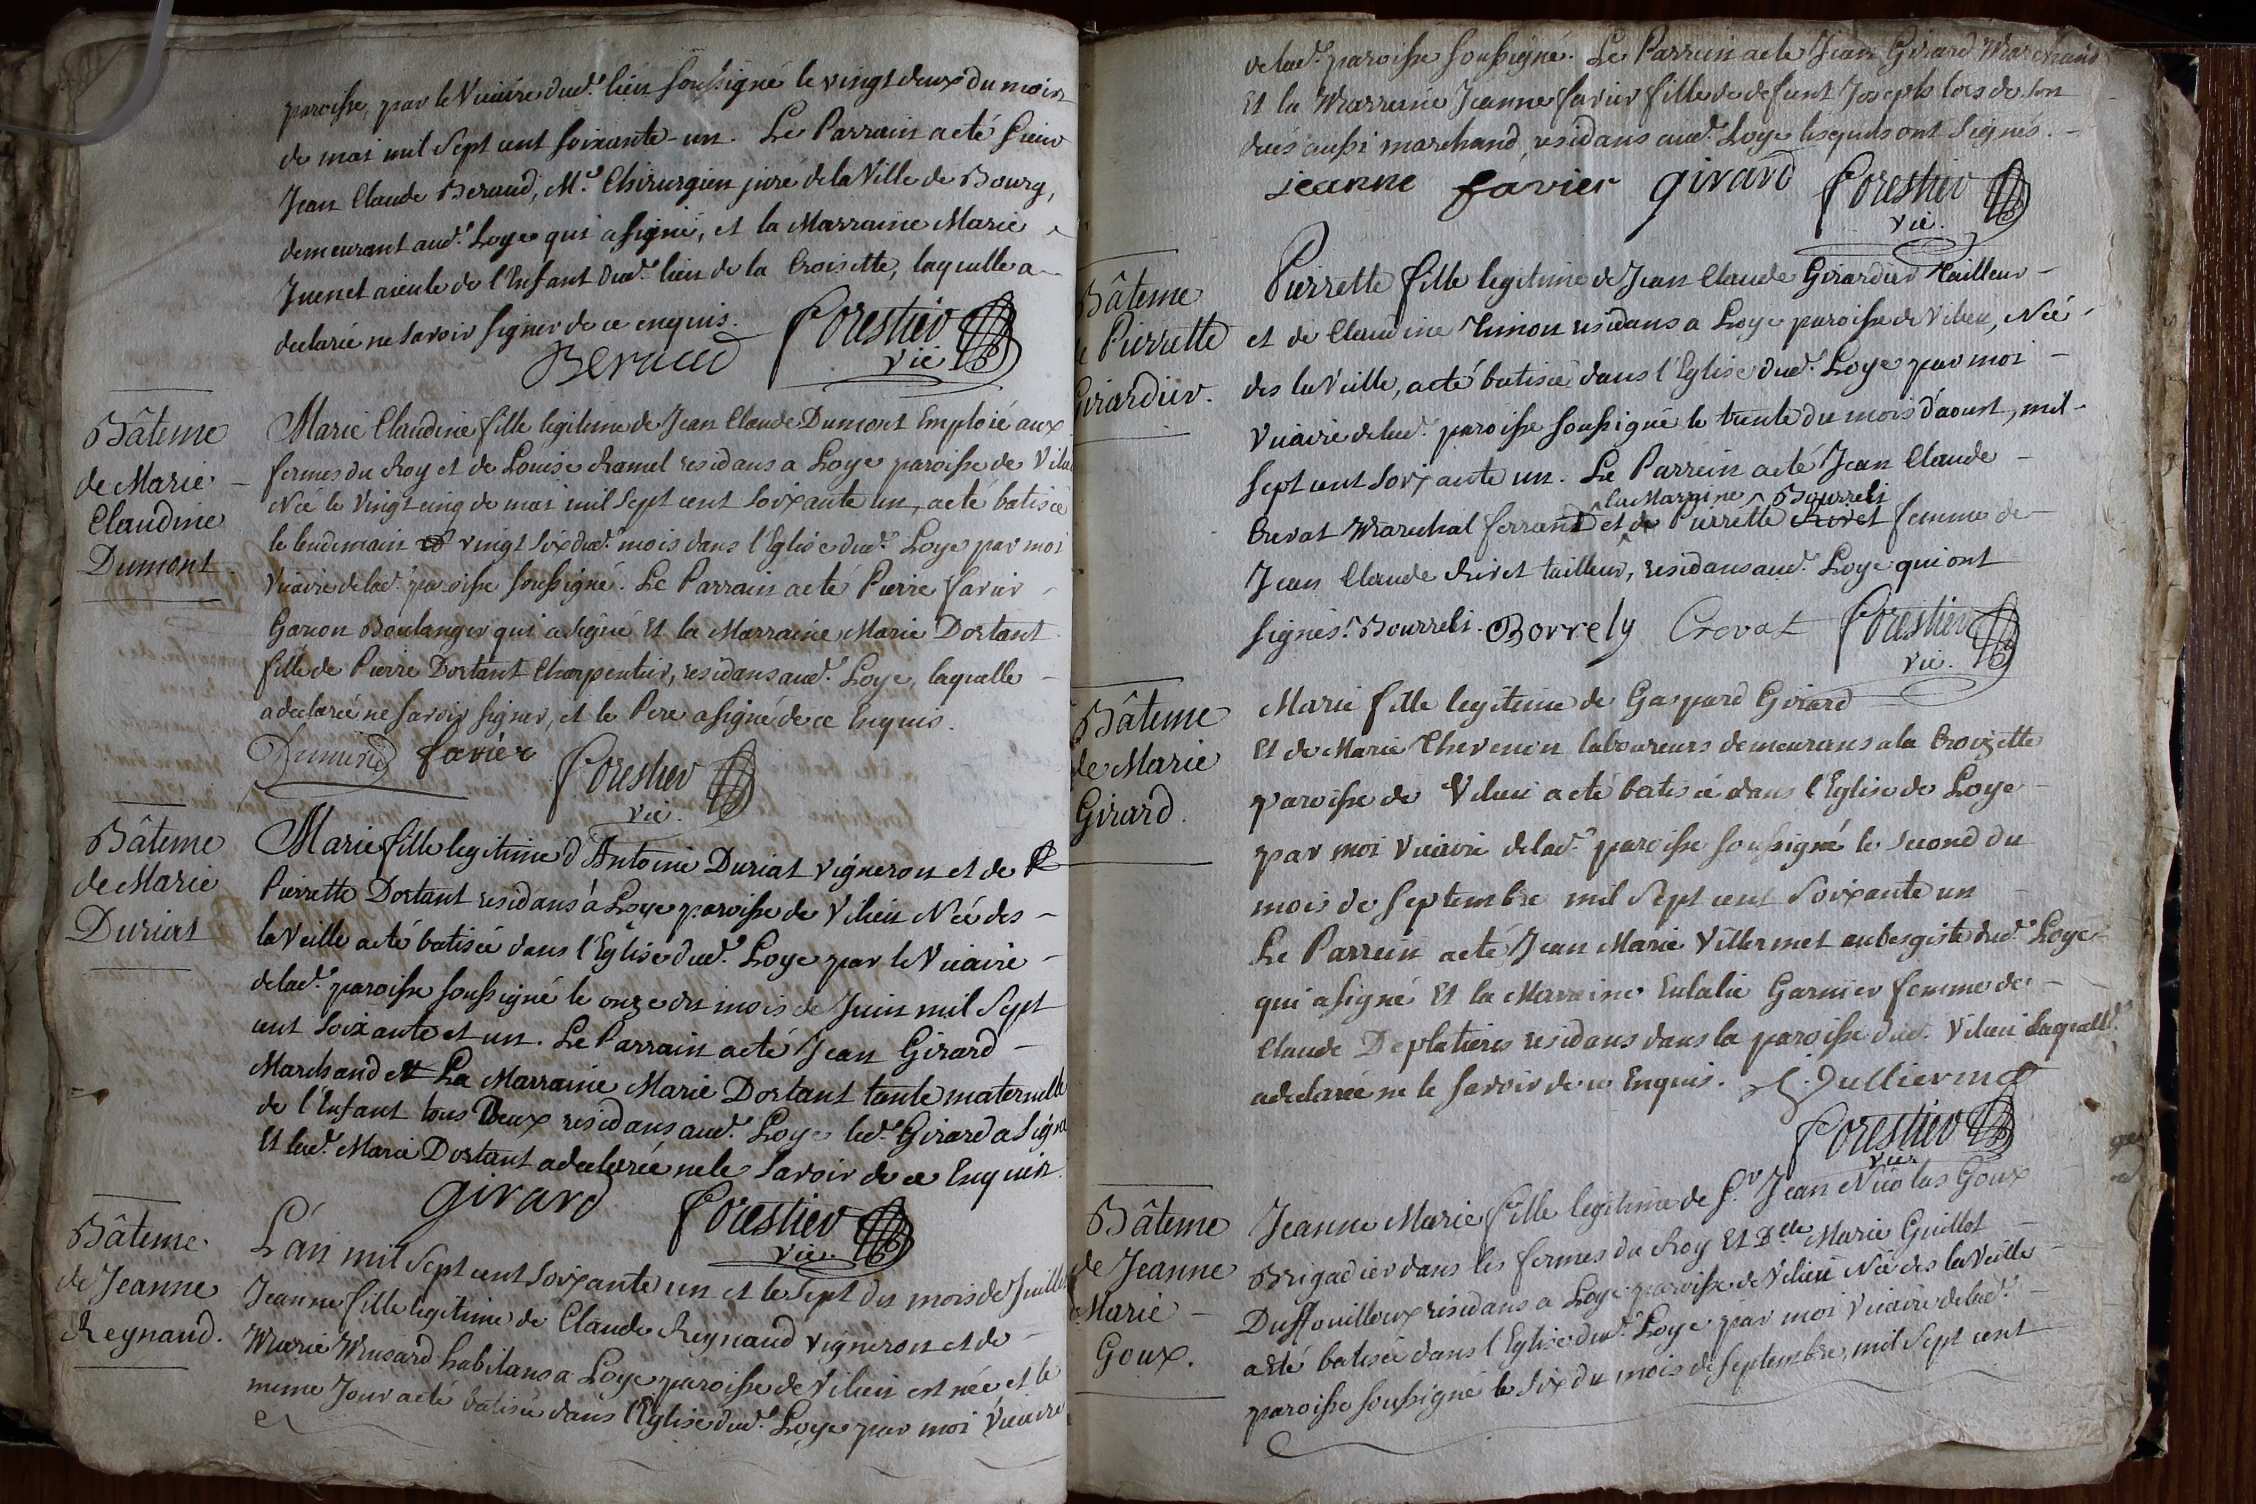 paroisse, par le Vicaire dud.t lieu soussigné le vingt deux du mois
de mai mil sept cent soixante-un. Le Parrain a eté sieur
Jean Claude Beraud, M.e Chirurgien juré de la Ville de Bourg,
demeurant aud.t Loye qui a signé, et la Marraine Marie
Juenet aieule de l'Enfant dud.t lieu de la Croisette, laquelle a
declarée ne savoir signer de ce enquis.
Beraud Forestier
vic.
Bâteme
de Marie
Claudine
Dumont.
Marie Claudine fille legitime de Jean Claude Dumont Emploié aux
fermes du Roy et de Louise Ramel residans a Loye paroisse de Vilieu
Née le vingt cinq de mai mil sept cent soixante un, a eté batisée
le lendemain vingt six dud.t mois dans l'Eglise dud.t Loye par moi
Vicaire de lad.e paroisse soussigné. Le Parrain a eté Pierre Favier
Garcon Boulanger qui a signé Et la Marraine Marie Dortant
fille de Pierre Dortant Charpentier, residans aud.t Loye, laquelle
a declarée ne savoir signer, et le Pere a signé de ce Enquis.
Dumond favier Forestier
vic.
Bâteme
de Marie
Duriat
Marie fille legitime d'Antoine Duriat vigneron et de
Pierrette Dortant residans à Loye paroisse de Vilieu Née des
la Veille a eté batisée dans l'Eglise dud.t Loye par le Vicaire
de lad.e paroisse soussigné le onze du mois de Juin mil sept
cent soixante et un. Le Parrain a eté Jean Girard
Marchand et La Marraine Marie Dortant tante maternelle
de l'Enfant tous deux residans aud.t Loye led.t Girard a signé
Et lad.e Marie Dortant a declarée ne le savoir de ce Enquis.
girard Forestier
vic.
Bâteme
de Jeanne
Reynaud.
L'an mil sept cent soixante un et le sept du mois de Juillet
Jeanne fille legitime de Claude Reynaud vigneron et de
Marie Musard habitans a Loye paroisse de Vilieu est née et le
meme Jour a eté batisée dans l'Eglise dud.t Loye par moi Vicaire
de lad.e paroisse soussigné. Le Parrein a eté Jean Girard Marchand
Et la Marreine Jeanne Favier fille de defunt Joseph lors de son
decés aussi marchand, residans aud.t Loye lesquels ont signés.
jeanne favier girard Forestier
vic.
Bâteme
de Pierrette
Girardier.
Pierrette fille legitime de Jean Claude Girardier Tailleur
et de Claudine Thinon residans a Loye paroisse de Vilieu, Née
des la Veille, a eté batisée dans l'Eglise dud.t Loye par moi
Vicaire de lad.e paroisse soussigné le trente du mois d'aoust, mil
sept cent soixante un. Le Parrein a eté Jean Claude
la Marraine Bourreli
Crevat Marechal ferrand et de Pierrette Rivet femme de
Jean Claude Rivet tailleur, residans aud.t Loye qui ont
signés. Bourreli. Borrely Crovat Forestier
vic.
Bâteme
de Marie
Girard.
Marie fille legitime de Gaspard Girard
Et de Marie Thevenin laboureurs demeurans a la Croizette
paroisse de Vilieu a eté batisée dans l'Eglise de Loye
par moi Vicaire de lad.e paroisse soussigné le second du
mois de septembre mil sept cent soixante un
Le Parrein a eté Jean Marie Villermet aubergiste dud.t Loye
qui a signé Et la Marreine Eulalie Garnier femme de
Claude Deplatieres residans dans la paroisse dud.t Vilieu laquelle
a declarée ne le savoir de ce Enquis.
Forestier
vic.
Bâteme
de Jeanne
Marie
Goux.
Jeanne Marie fille legitime de S.r Jean Nicolas Goux
Brigadier dans les fermes du Roy Et D.lle Marie Guillot
Duffouilloux residans a Loye paroisse de Vilieu Née des la Veille
a eté batisée dans l'Eglise dud.t Loye par moi Vicaire de lad.e
paroisse soussigné le six du mois de septembre, mil sept cent